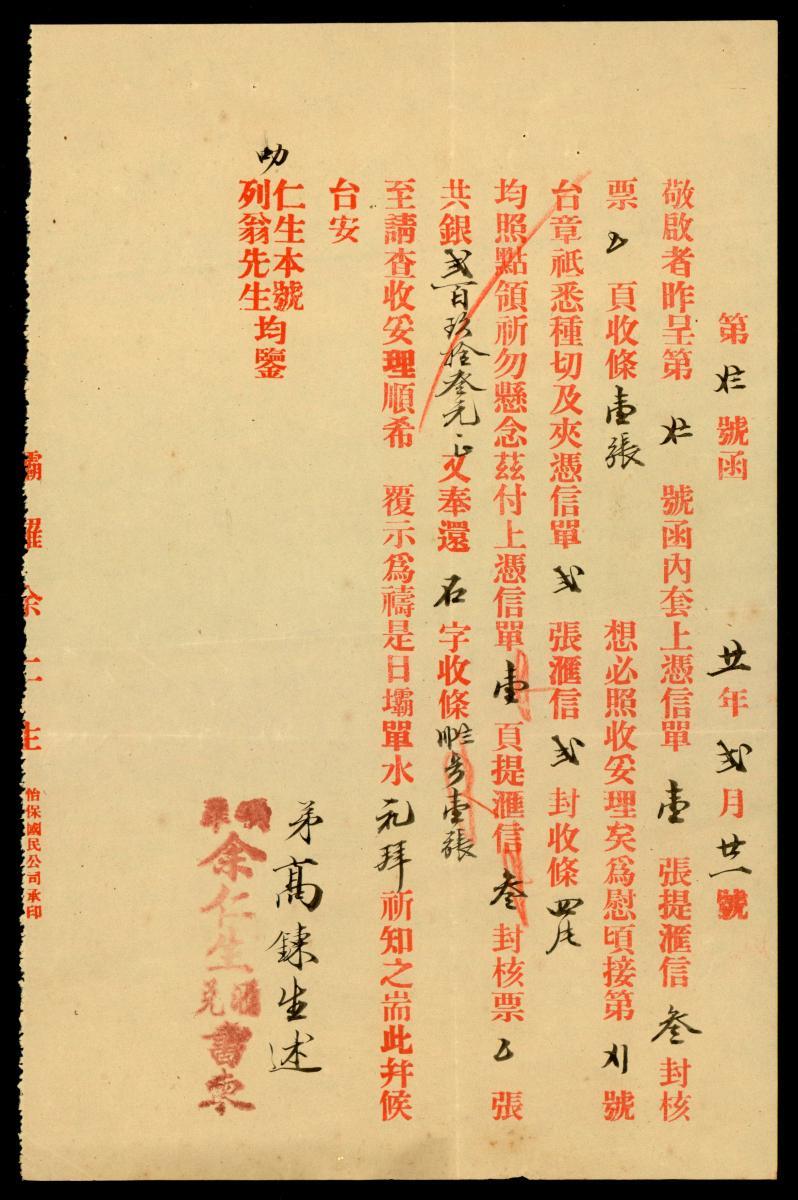 第 号函 廿年弍月廿一號
敬啟者昨呈第 號函內套上憑信單壹張提滙信叁封核
票 頁收條壹張 想必照收妥理矣爲慰頃接第 號
台章祗悉種切及夾憑信單弍張滙信弍封收條四
均照點領祈勿懸念茲付上憑信單壹頁提滙信叁封核票 張
共銀弍百玖拾叁元正又奉還石字收條 壹張
至請查收妥理順希 覆示爲禱是日壩單水元拜祈知之耑此幷候
台安
叻
仁生本號
列翁先生 均鑒
弟高鍊生述
余仁生書柬
壩羅余仁生
怡保國民公司承印